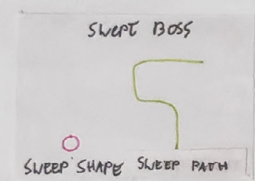 SWEPT BOSS
SWEEP SHAPE SWEEP PATH